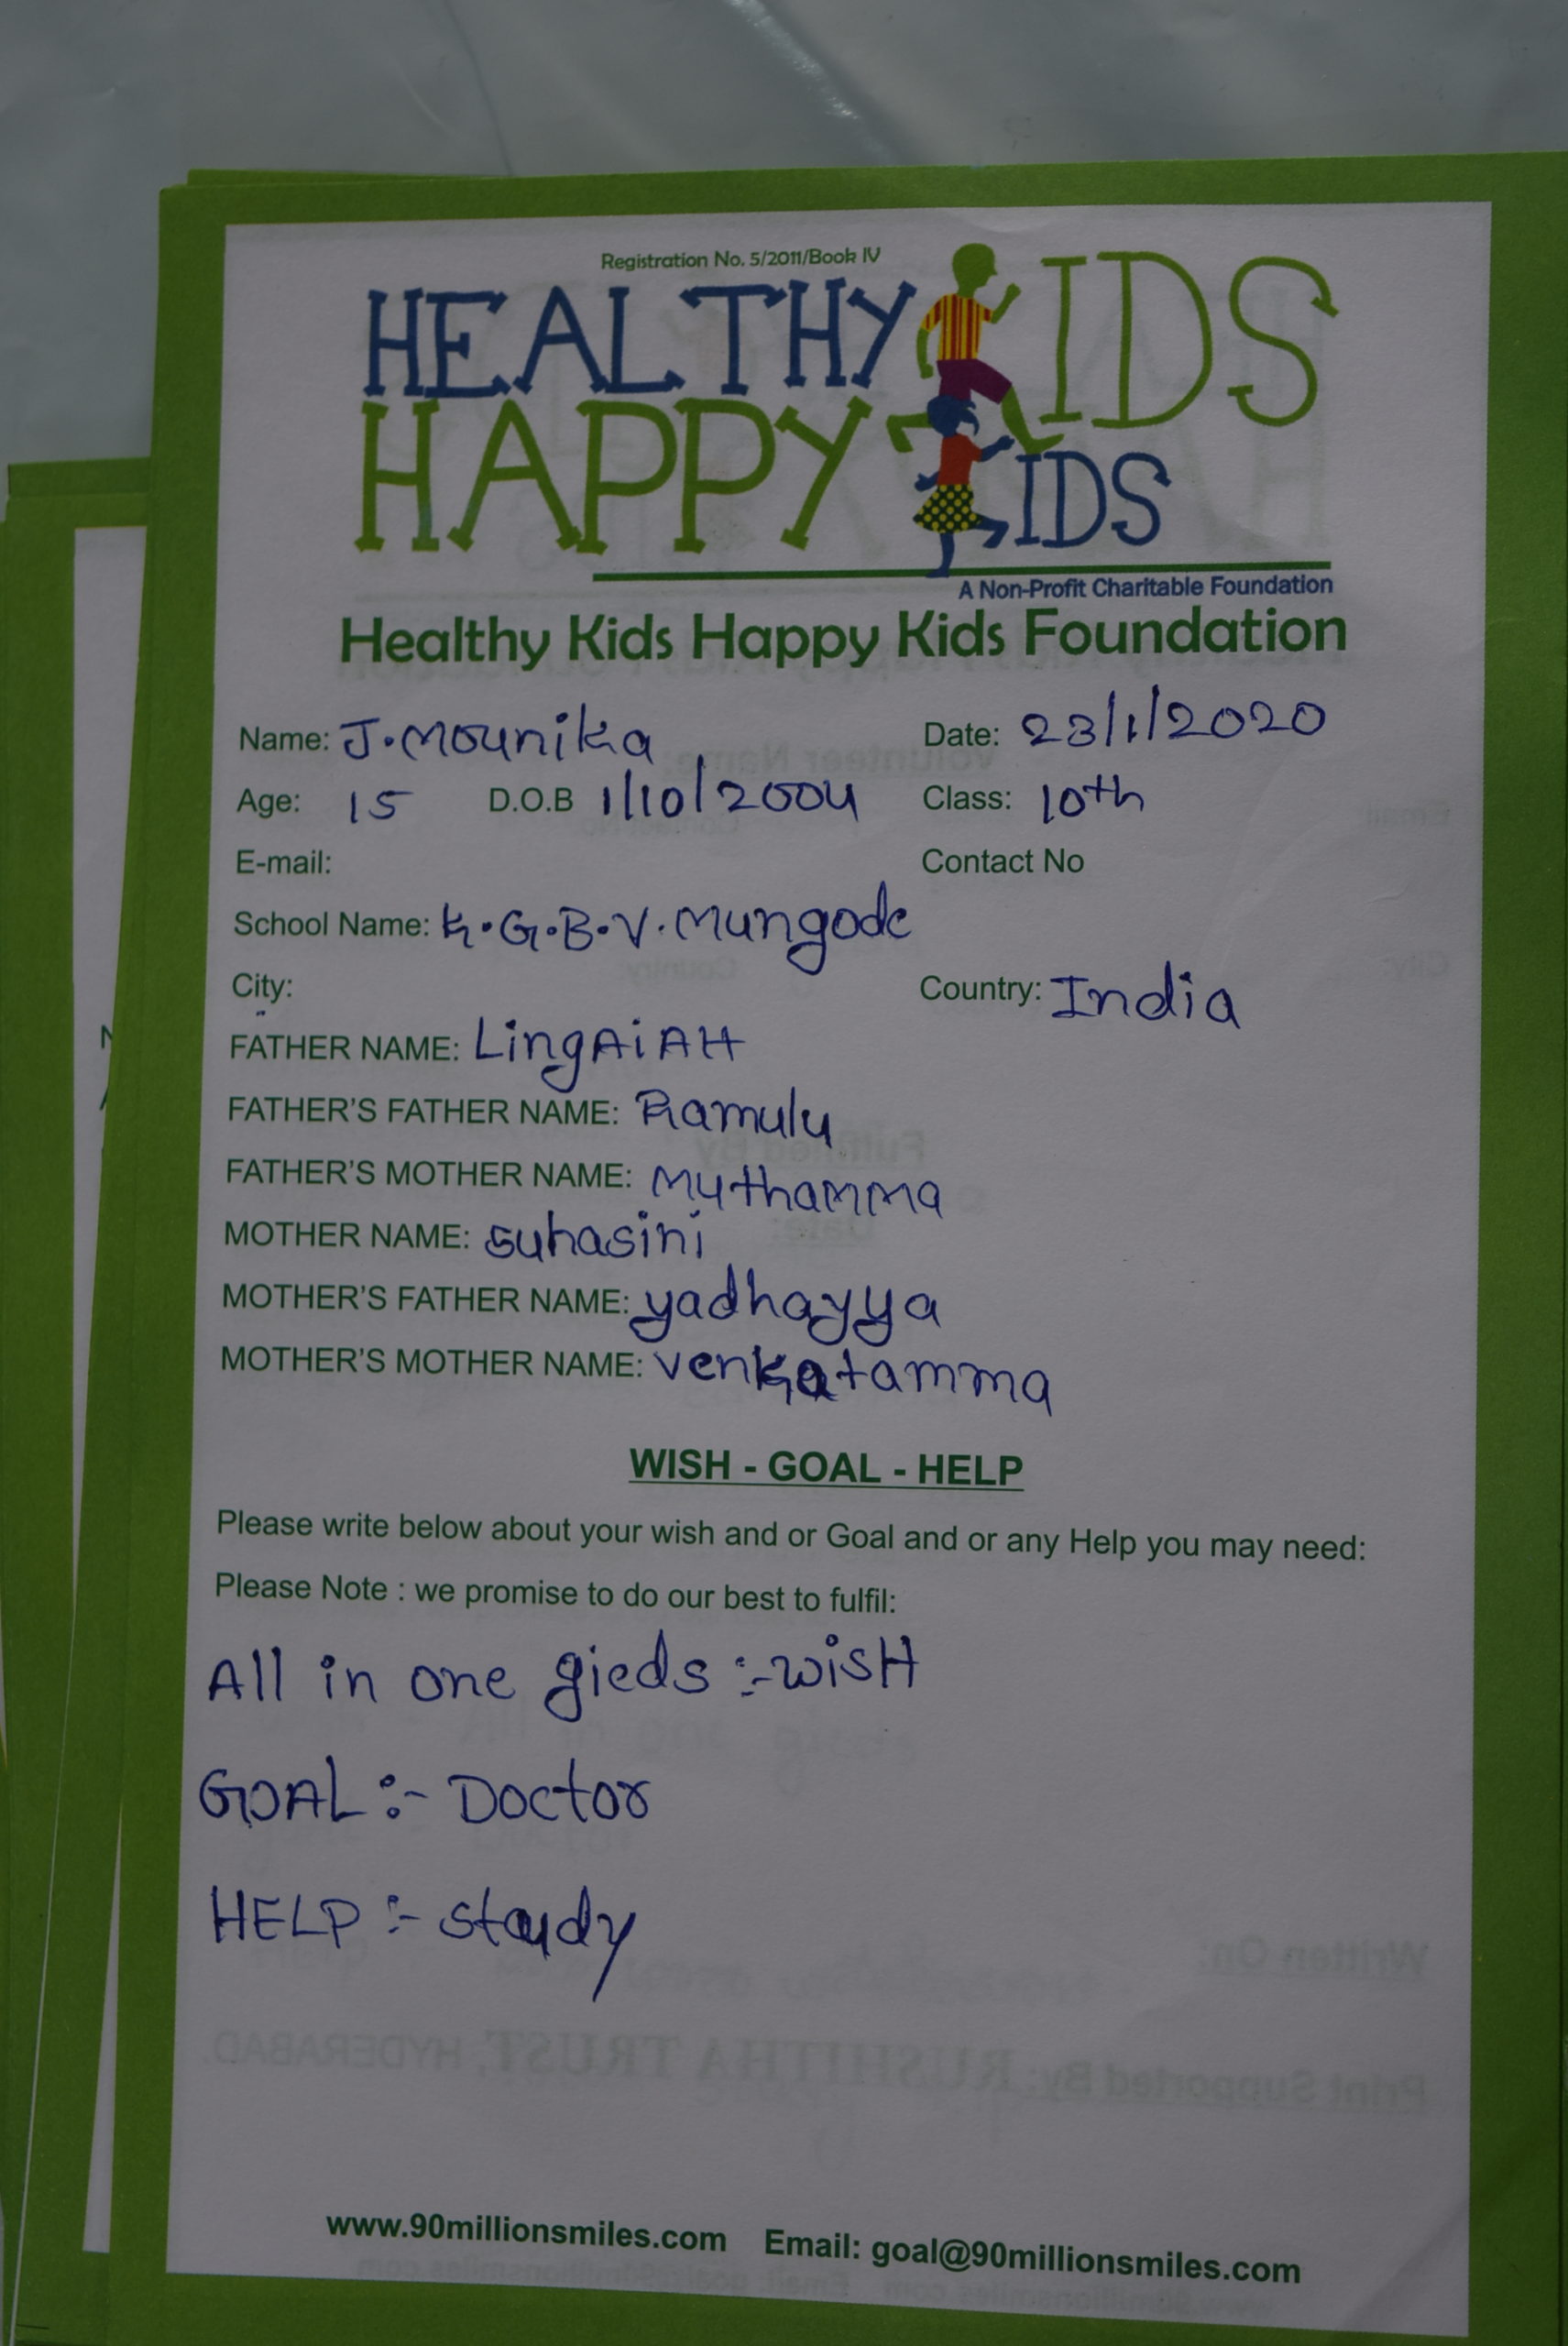 Registration No. 5/2011/Book IV
HEALTHY KIDS
HAPPY KIDS
A Non-Profit Charitable Foundation
Healthy Kids Happy Kids Foundation
Name: J.Mounika Date: 23/1/2020
Age: 15 D.O.B 1/10/2004 Class: 10th
E-mail: Contact No
School Name: K.G.B.V.Mungode
City: Country: India
FATHER NAME: LingAiAH
FATHER'S FATHER NAME: Ramulu
FATHER'S MOTHER NAME: Muthamma
MOTHER NAME: suhasini
MOTHER'S FATHER NAME: yadhayya
MOTHER'S MOTHER NAME: venkatamma
WISH - GOAL - HELP
Please write below about your wish and or Goal and or any Help you may need:
Please Note : we promise to do our best to fulfil:
All in one gieds :- wisH
GOAL :- Doctor
HELP :- study
Written On:
Print Supported By: RUSHITHA TRUST, HYDERABAD.
www.90millionsmiles.com Email: goal@90millionsmiles.com